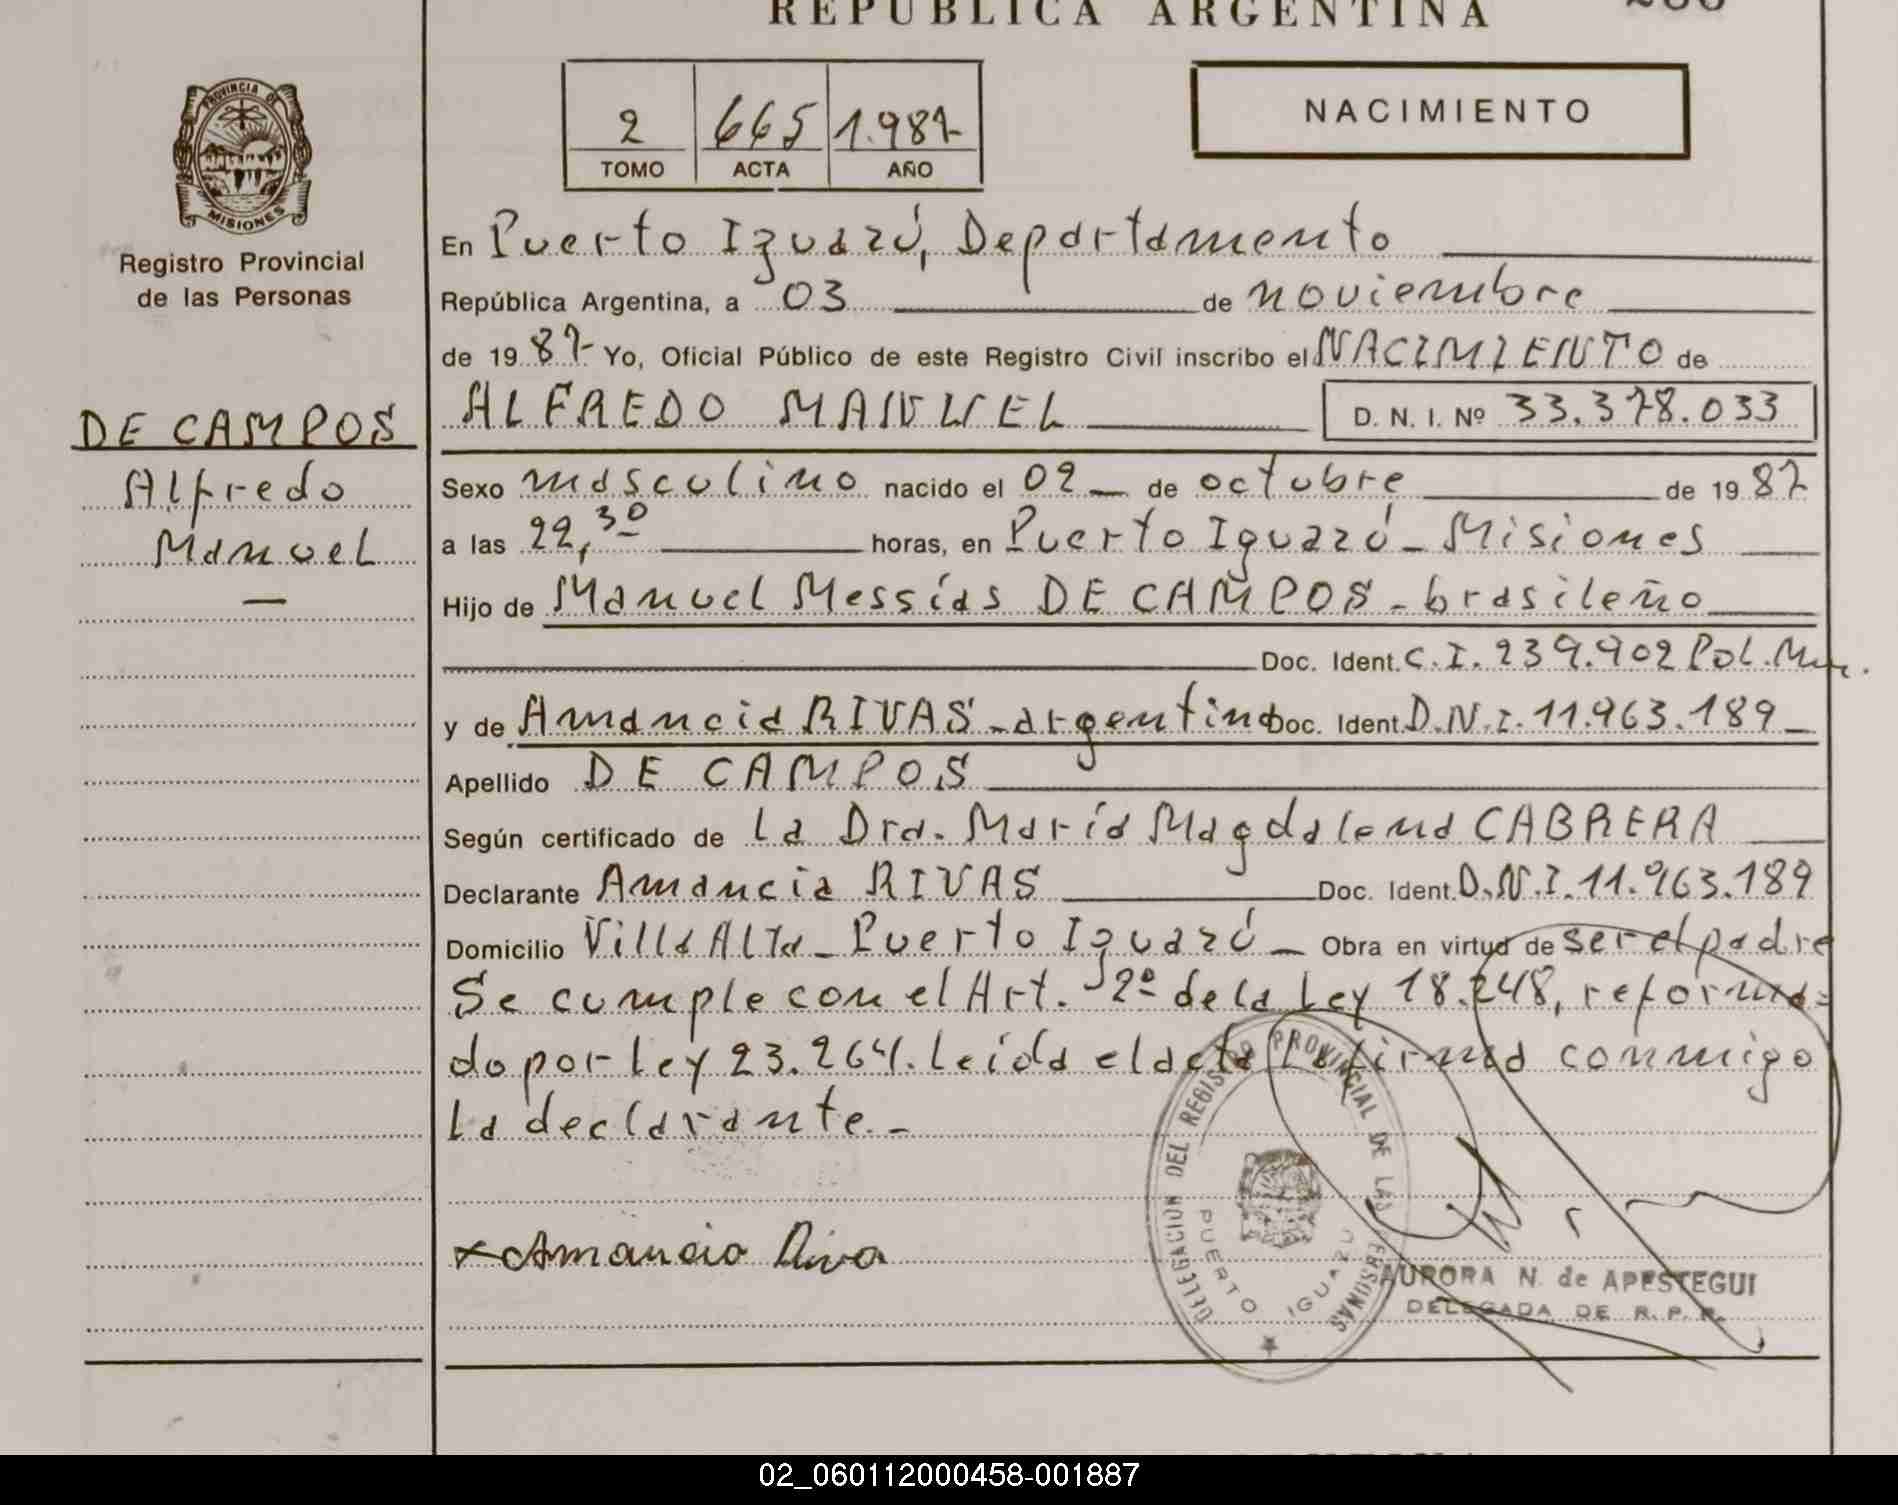 REPUBLICA ARGENTINA
PROVINCIA DE
MISIONES
Registro Provincial
de las Personas
2 665 1.987
TOMO ACTA AÑO
NACIMIENTO
En Puerto Iguazú, Departamento
República Argentina, a 03 de noviembre
de 19 87 Yo, Oficial Público de este Registro Civil inscribo el NACIMIENTO de
ALFREDO MANUEL D. N. I. Nº 33.378.033
DE CAMPOS
Alfredo
Manuel
—
Sexo masculino nacido el 02 — de octubre de 19 87
a las 22,30 horas, en Puerto Iguazú - Misiones
Hijo de Manuel Messías DE CAMPOS - brasileño
Doc. Ident. C.I. 239.902 Pol.
y de Amancia RIVAS - argentina Doc. Ident. D.N.I. 11.963.189 -
Apellido DE CAMPOS
Según certificado de la Dra. María Magdalena CABRERA
Declarante Amancia RIVAS Doc. Ident. D.N.I. 11.963.189
Domicilio Villa Alta - Puerto Iguazú - Obra en virtud de ser el padre
Se cumple con el Art. 2º de la Ley 18.248, reforma=
do por Ley 23.264. Leída el acta la firma conmigo
la declarante. -
x Amancio Riva
DELEGACION DEL REGISTRO PROVINCIAL DE LAS PERSONAS
PUERTO IGUAZU
AURORA N. de APESTEGUI
DELEGADA DE R. P. P.
02_060112000458-001887